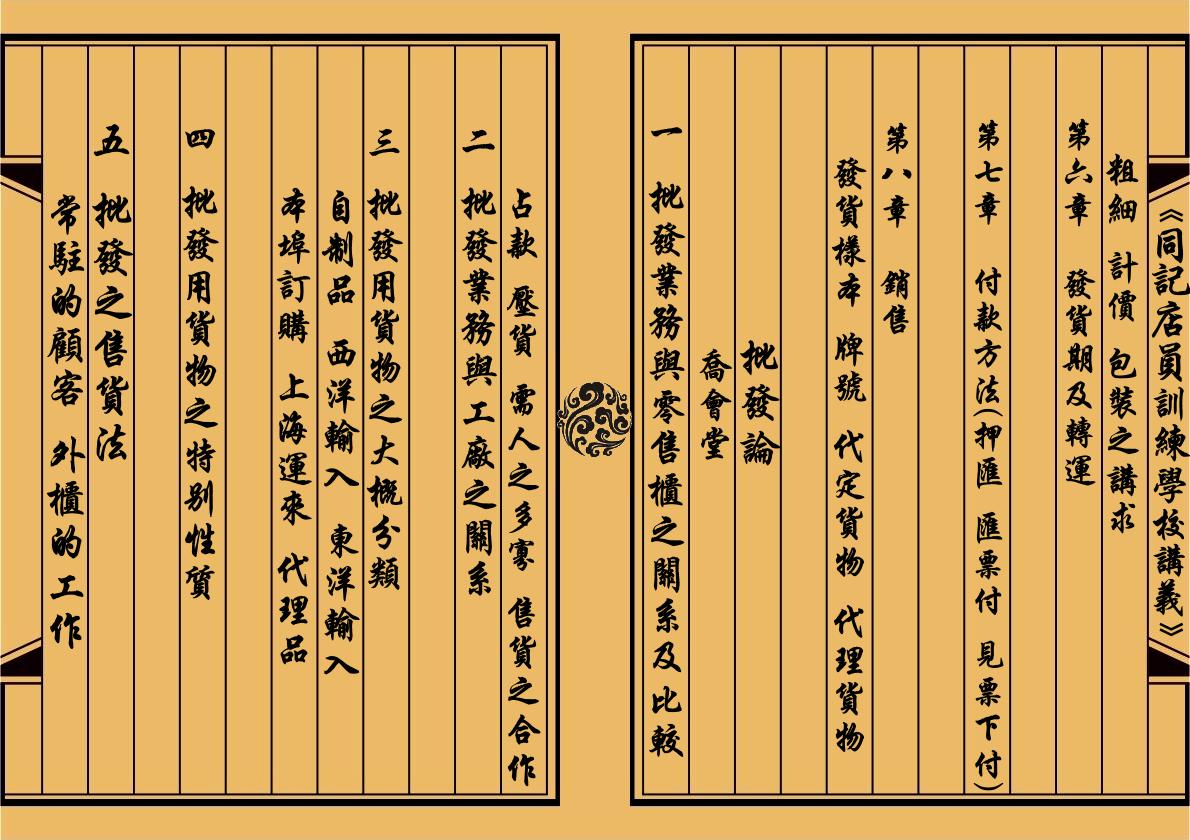 《同記店員訓練學校講義》
粗細 計價 包裝之講求
第六章 發貨期及轉運
第七章 付款方法(押匯 匯票付 見票下付)
第八章 銷售
發貨樣本 牌號 代定貨物 代理貨物
批發論
喬會堂
一 批發業務與零售櫃之關系及比較
占款 壓貨 需人之多寡 售貨之合作
二 批發業務與工廠之關系
三 批發用貨物之大概分類
自制品 西洋輸入 東洋輸入
本埠訂購 上海運來 代理品
四 批發用貨物之特別性質
五 批發之售貨法
常駐的顧客 外櫃的工作